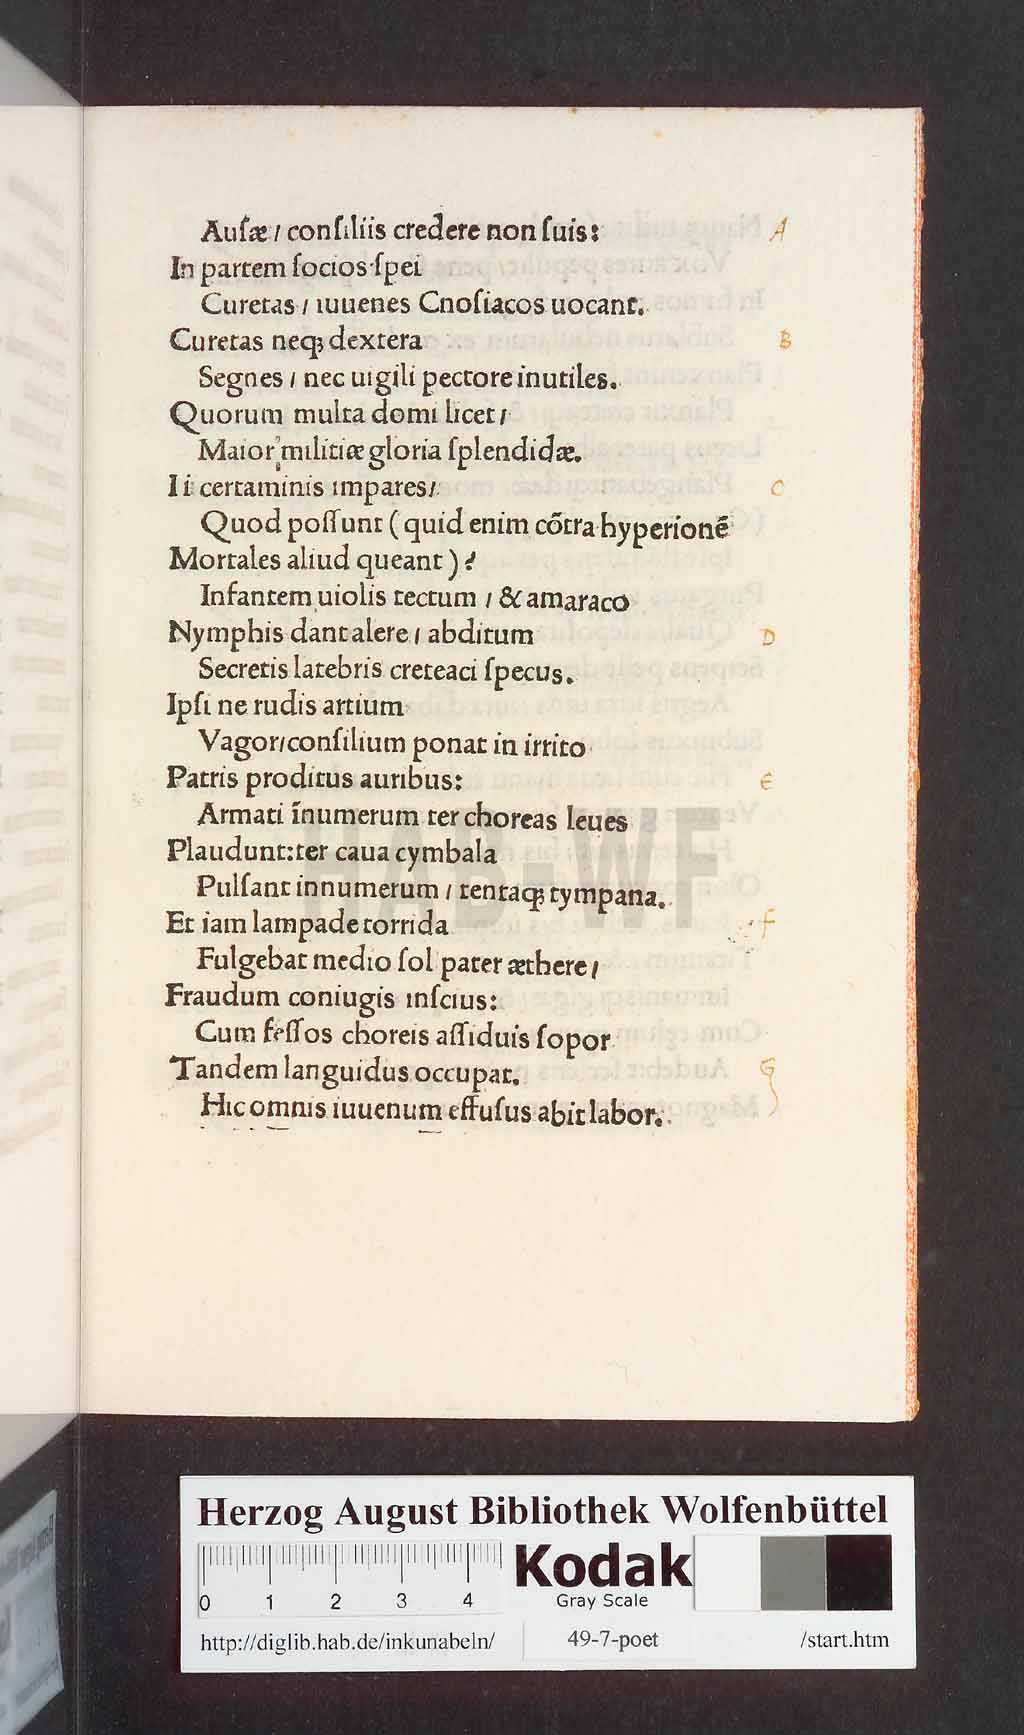 Auſæ / conſiliis credere non ſuis: A
In partem ſocios ſpei
Curetas / iuuenes Cnoſiacos uocant.
Curetas neqꝫ dextera B
Segnes / nec uigili pectore inutiles.
Quorum multa domi licet /
Maior militiæ gloria ſplendidæ.
Ii certaminis impares / C
Quod poſſunt ( quid enim cõtra hyperionẽ
Mortales aliud queant ) ?
Infantem uiolis tectum / & amaraco
Nymphis dant alere / abditum D
Secretis latebris creteaci ſpecus.
Ipſi ne rudis artium
Vagor / conſilium ponat in irrito
Patris proditus auribus: E
Armati ĩnumerum ter choreas leues
Plaudunt: ter caua cymbala
Pulſant innumerum / tentaqꝫ tympana.
Et iam lampade torrida F
Fulgebat medio ſol pater æthere /
Fraudum coniugis inſcius:
Cum feſſos choreis aſſiduis ſopor
Tandem languidus occupat. G
Hic omnis iuuenum effuſus abit labor.
HAB-WF
Herzog August Bibliothek Wolfenbüttel
0 1 2 3 4
Kodak
Gray Scale
http://diglib.hab.de/inkunabeln/ 49-7-poet /start.htm